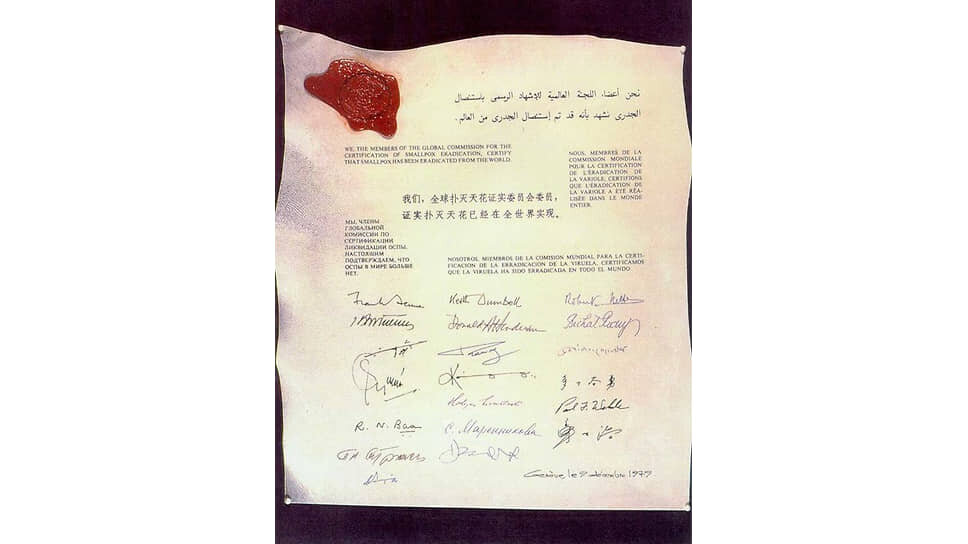 نحن أعضاء اللجنة العالمية للإشهاد الرسمى باستئصال
الجدرى نشهد بأنه قد تم إستئصال الجدرى من العالم.
WE, THE MEMBERS OF THE GLOBAL COMMISSION FOR THE
CERTIFICATION OF SMALLPOX ERADICATION, CERTIFY
THAT SMALLPOX HAS BEEN ERADICATED FROM THE WORLD.
NOUS, MEMBRES DE LA
COMMISSION MONDIALE
POUR LA CERTIFICATION
DE L'ÉRADICATION DE
LA VARIOLE, CERTIFIONS
QUE L'ÉRADICATION DE
LA VARIOLE A ÉTÉ RÉA-
LISÉE DANS LE MONDE
ENTIER.
我们，全球扑灭天花证实委员会委员，
证实扑灭天花已经在全世界实现。
МЫ, ЧЛЕНЫ
ГЛОБАЛЬНОЙ
КОМИССИИ ПО
СЕРТИФИКАЦИИ
ЛИКВИДАЦИИ ОСПЫ,
НАСТОЯЩИМ
ПОДТВЕРЖДАЕМ, ЧТО
ОСПЫ В МИРЕ БОЛЬШЕ
НЕТ.
NOSOTROS, MIEMBROS DE LA COMISION MUNDIAL PARA LA CERTI-
FICACION DE LA ERRADICACION DE LA VIRUELA, CERTIFICAMOS
QUE LA VIRUELA HA SIDO ERRADICADA EN TODO EL MUNDO.
Keith Dumbell
Donald A Henderson
R. N. Basu
С. Маренникова
Genève, le 9 décembre 1979